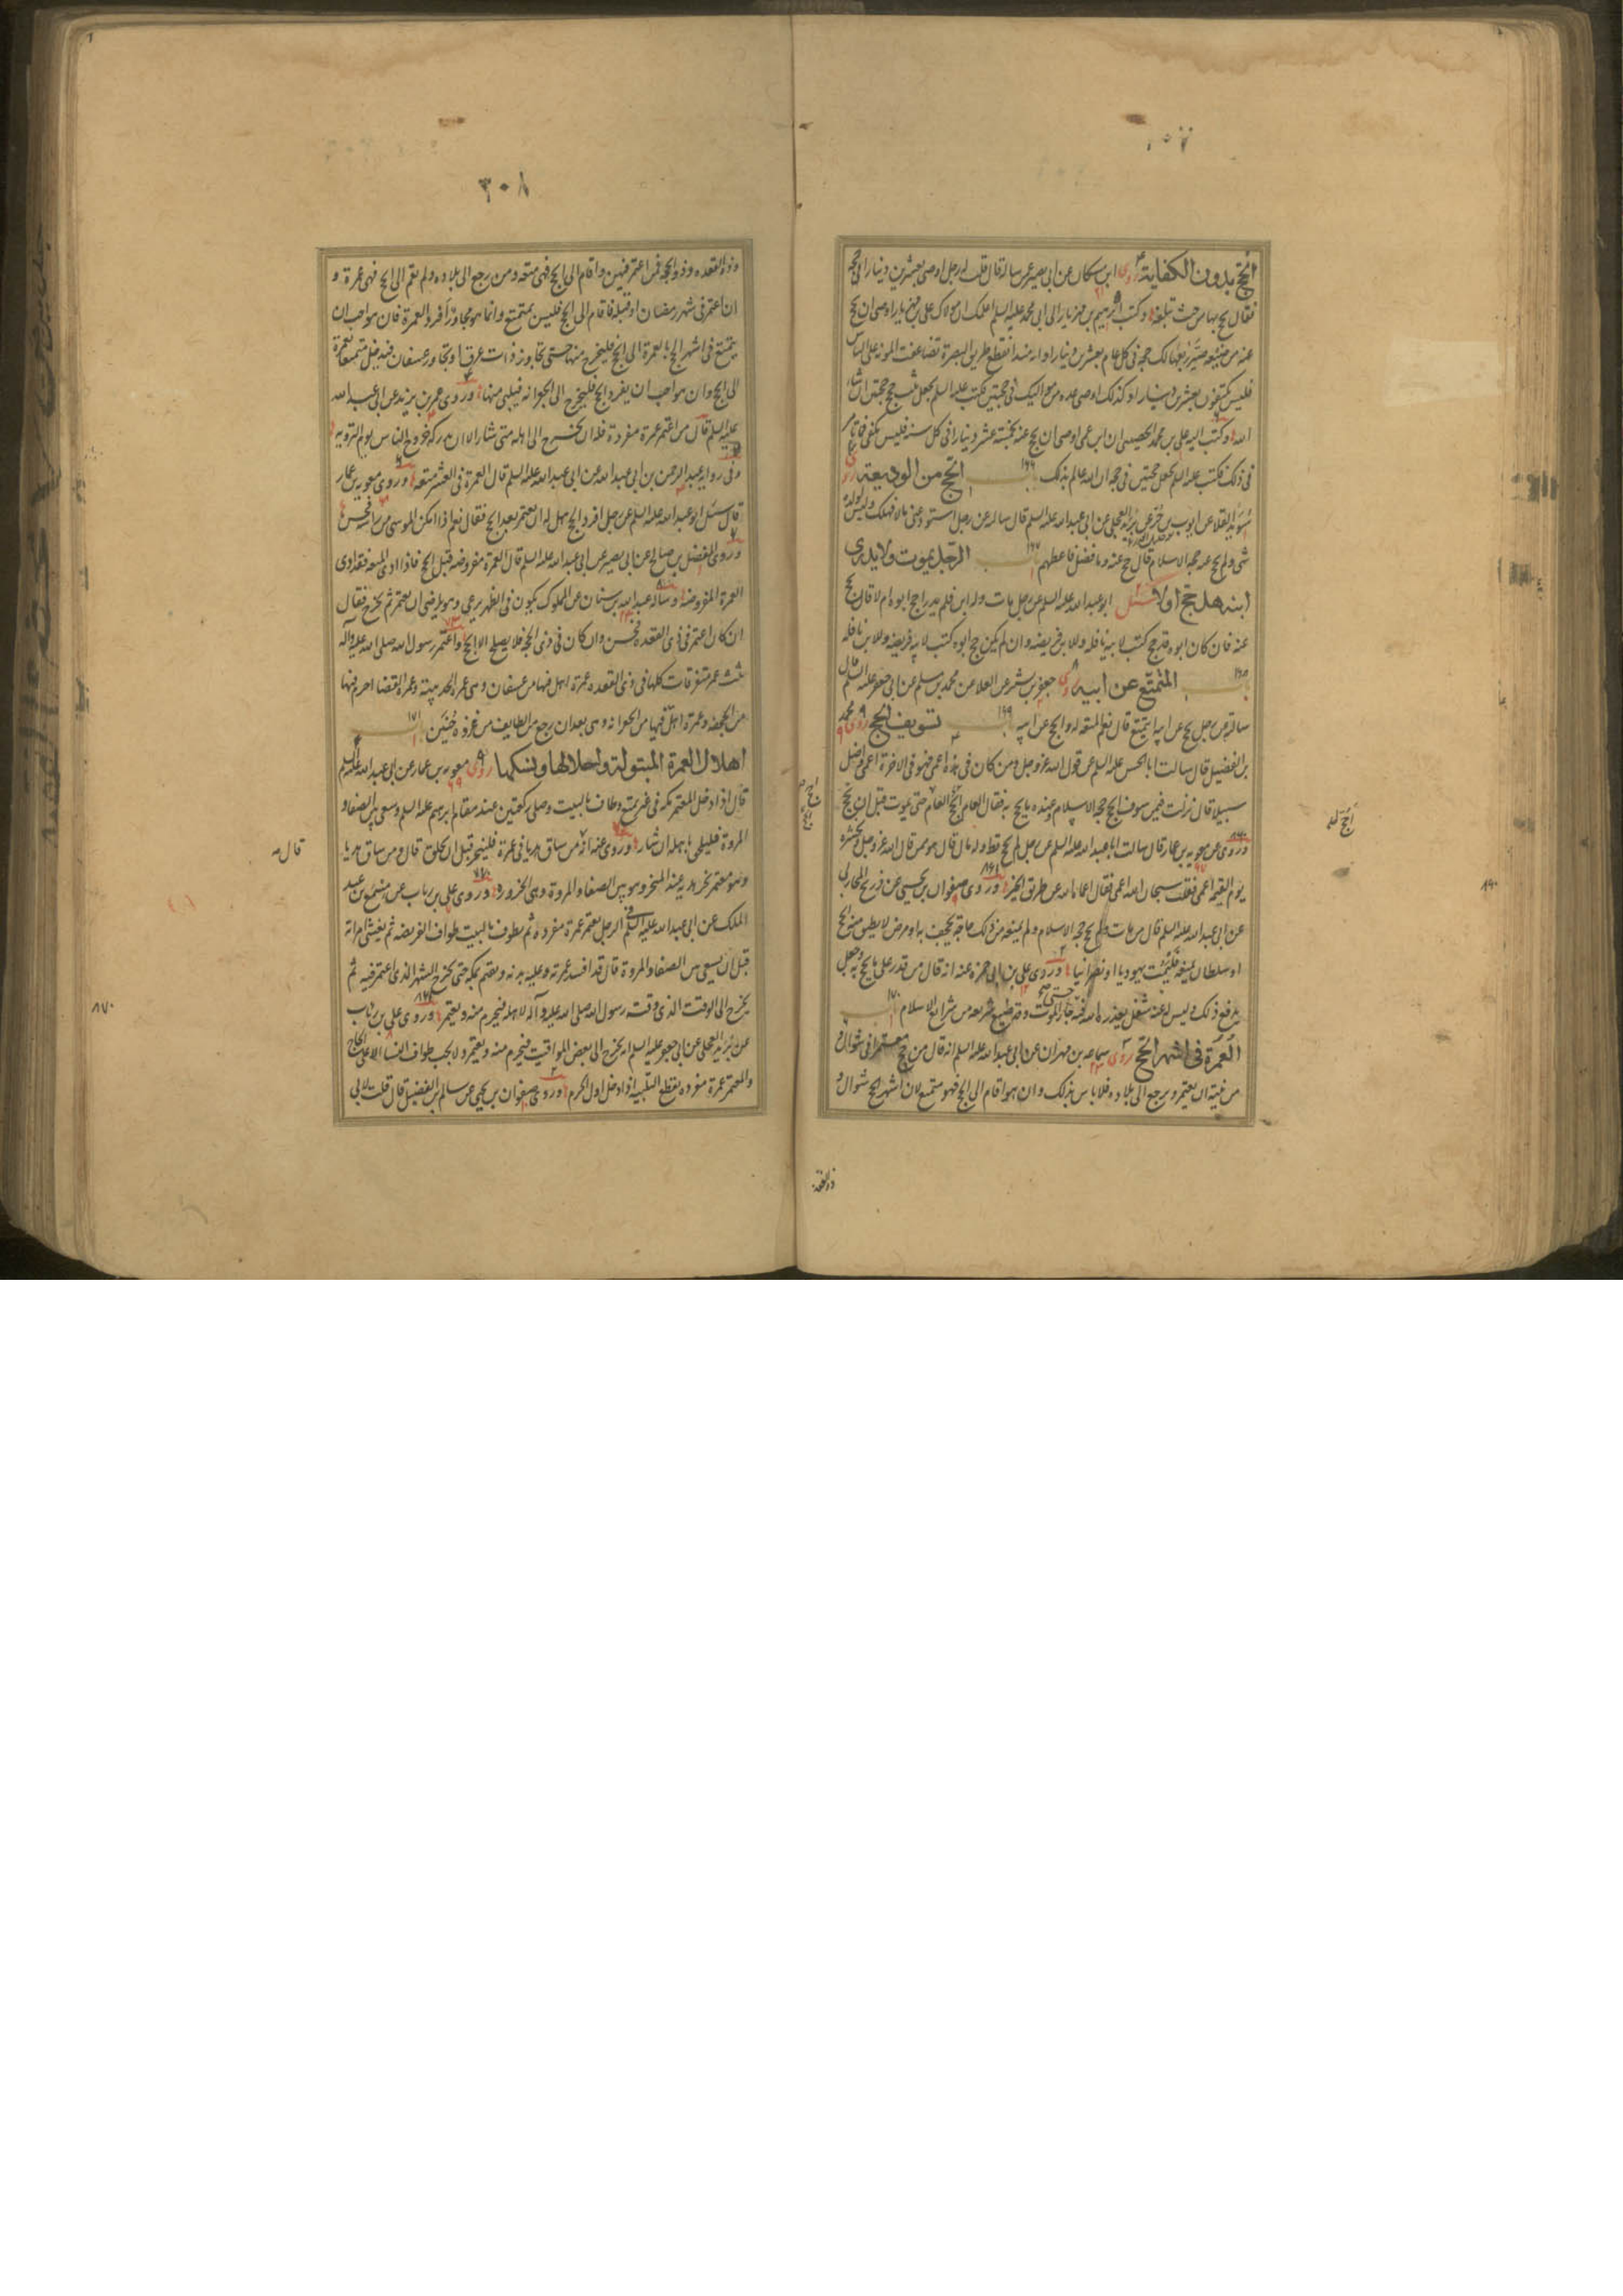 الحج بدون الكفاية روى ابن مسكان عن ابى بصير عمن ساله قال قلت له رجل اوصى بعشرين دينارا فى حجة
فقال يحج بها من حيث تبلغه وكتب ابرهيم بن مهزيار الى ابى محمد عليه السلم اعلمك ان مولاك على بن مهزيار اوصى ان يحج
عنه من ضيعة صير ربعها لك حجة فى كل عام بعشرين دينارا وانه منذ انقطع طريق البصرة تضاعفت المونة على الناس
فليس يكتفون بعشرين دينارا وكذلك اوصى عدة من مواليك فى حجتين فكتب عليه السلم يجعل ثلث حجج حجتين ان شاء
الله وكتب اليه على بن محمد الحصينى ان ابن عمى اوصى ان يحج عنه بخمسة عشر دينارا فى كل سنة فليس يكفى فما تامر
فى ذلك فكتب عليه السلم يجعل حجتين فى حجة ان الله عالم بذلك ١٦٦ باب الحج من الوديعة روى
سويد القلا عن ايوب بن حر عن بريد العجلى عن ابى عبد الله عليه السلم قال سالته عن رجل استودعنى مالا فهلك وليس لولده
شى ولم يحج حجة الاسلام قال حج عنه وما فضل فاعطهم ١٦٧ باب الرجل يموت ولا يدرى
ابنه هل حج اولا سئل ابو عبد الله عليه السلم عن رجل مات وله ابن فلم يدر احج ابوه ام لا قال يحج
عنه فان كان ابوه قد حج كتب لابيه نافلة وللابن فريضة وان لم يكن حج ابوه كتب لابيه فريضة وللابن نافلة
١٦٨ باب المتمتع عن ابيه روى جعفر بن بشير عن العلا عن محمد بن مسلم عن ابى جعفر عليه السلم قال
سالته عن رجل يحج عن ابيه ايتمتع قال نعم المتعة له والحج عن ابيه ١٦٩ باب تسويف الحج روى محمد
بن الفضيل قال سالت ابا الحسن عليه السلم عن قول الله عز وجل ومن كان فى هذه اعمى فهو فى الاخرة اعمى واضل
سبيلا قال نزلت فيمن سوف الحج حجة الاسلام وعنده ما يحج به فقال العام احج العام احج حتى يموت قبل ان يحج
وروى عن معوية بن عمار قال سالت ابا عبد الله عليه السلم عن رجل لم يحج قط وله مال قال هو ممن قال الله عز وجل ونحشره
يوم القيمة اعمى فقلت سبحان الله اعمى فقال اعماه الله عن طريق الخير وروى صفوان بن يحيى عن ذريح المحاربى
عن ابى عبد الله عليه السلم قال من مات ولم يحج حجة الاسلام ولم يمنعه من ذلك حاجة تجحف به او مرض لا يطيق منه الحج
او سلطان يمنعه فليمت يهوديا او نصرانيا وروى على بن ابى حمزة عنه انه قال من قدر على ما يحج به وجعل
يدفع ذلك وليس له عنه شغل يعذره الله فيه حتى جاء الموت فقد ضيع شريعة من شرايع الاسلام ١٧٠ باب
العمرة فى اشهر الحج روى سماعة بن مهران عن ابى عبد الله عليه السلم انه قال من حج معتمرا فى شوال و
من نيته ان يعتمر ويرجع الى بلاده فلا باس بذلك وان هو اقام الى الحج فهو متمتع لان اشهر الحج شوال و
ذو القعدة
٣٠٨
وذو القعدة وذو الحجة فمن اعتمر فيهن واقام الى الحج فهى متعة ومن رجع الى بلاده ولم يقم الى الحج فهى عمرة و
ان اعتمر فى شهر رمضان او قبله فاقام الى الحج فليس بمتمتع وانما هو مجاور افرد العمرة فان هو احب ان
يتمتع فى اشهر الحج بالعمرة الى الحج فليخرج منها حتى يجاوز ذات عرق او يجاوز عسفان فيدخل متمتعا بعمرة
الى الحج وان هو احب ان يفرد الحج فليخرج الى الجعرانة فيلبى منها وروى عمر بن يزيد عن ابى عبد الله
عليه السلم قال من اعتمر عمرة مفردة فله ان يخرج الى اهله متى شاء الا ان يدركه خروج الناس يوم التروية
وفى رواية عبد الرحمن بن ابى عبد الله عن ابى عبد الله عليه السلم قال العمرة فى العشر متعة وروى معوية بن عمار
قال سئل ابو عبد الله عليه السلم عن رجل افرد الحج هل له ان يعتمر بعد الحج فقال نعم اذا امكن الموسى من راسه فحسن
وروى المفضل بن صالح عن ابى بصير عن ابى عبد الله عليه السلم قال العمرة مفروضة مثل الحج فاذا ادى المتعة فقد ادى
العمرة المفروضة وساله عبد الله بن سنان عن المملوك يكون فى الظهر يرعى وهو يرضى ان يعتمر ثم يخرج فقال
ان كان اعتمر فى ذى القعدة فحسن وان كان فى ذى الحجة فلا يصلح الا الحج واعتمر رسول الله صلى الله عليه وآله
ثلث عمر متفرقات كلها فى ذى القعدة عمرة اهل فيها من عسفان وهى عمرة الحديبية وعمرة القضا احرم فيها
من الجحفة وعمرة اهل فيها من الجعرانة وهى بعد ان رجع من الطايف من غزوة حنين ١٧١ باب
اهلال العمرة المبتولة واحلالها ونسكها روى معوية بن عمار عن ابى عبد الله عليه السلم
قال اذا دخل المعتمر مكة فى غير تمتع وطاف بالبيت وصلى ركعتين عند مقام ابرهيم عليه السلم وسعى بين الصفا و
المروة فليلحق باهله ان شاء وروى عنه انه من ساق هديا فى عمرة فلينحر قبل ان يحلق قال ومن ساق هديا
وهو معتمر نحر هديه عند المنحر وهو بين الصفا والمروة وهى الحزورة وروى على بن رياب عن مسمع بن عبد
الملك عن ابى عبد الله عليه السلم فى الرجل يعتمر عمرة مفردة ثم يطوف بالبيت طواف الفريضة ثم يغشى امراته
قبل ان يسعى بين الصفا والمروة قال قد افسد عمرته وعليه بدنة ويقيم بمكة حتى يخرج الشهر الذى اعتمر فيه ثم
يخرج الى الوقت الذى وقته رسول الله صلى الله عليه وآله لاهله فيحرم منه ويعتمر وروى على بن رياب
عن بريد العجلى عن ابى جعفر عليه السلم انه يخرج الى بعض المواقيت فيحرم منه ويعتمر ولا يجب طواف النسا الا على الحاج
والمعتمر عمرة مفردة يقطع التلبية اذا دخل اول الحرم وروى صفوان بن يحيى عن سالم بن الفضيل قال قلت لابى
قال
٨٧٠